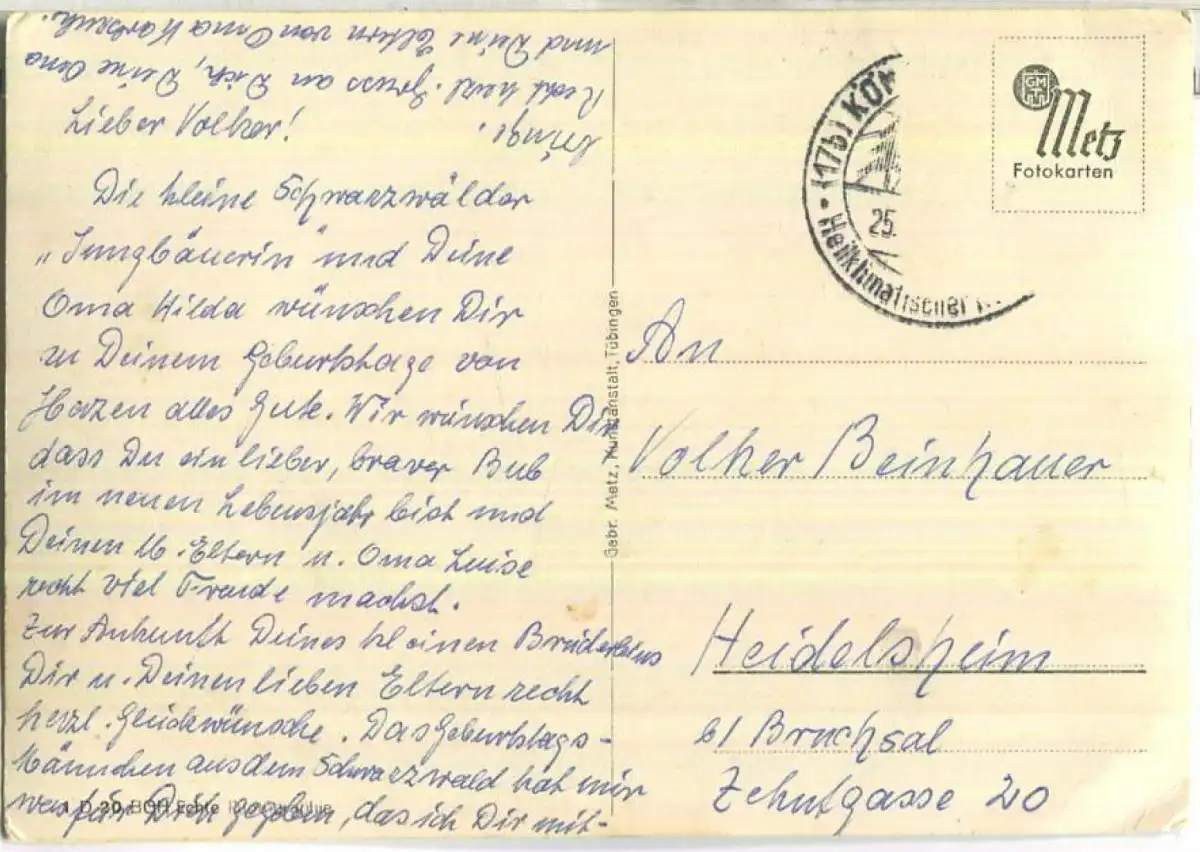 Lieber Volker!
Die kleine Schwarzwälder
„Jungbäuerin" und Deine
Oma Hilda wünschen Dir
zu Deinem Geburtstage von
Herzen alles Gute. Wir wünschen Dir
dass Du ein lieber, braver Bub
im neuen Lebensjahr bist und
Deinen lb. Eltern u. Oma Luise
recht viel Freude machst.
Zur Ankunft Deines kleinen Brüderleins
Dir u. Deinen lieben Eltern recht
herzl. Glückwünsche. Das Geburtstags-
Männchen aus dem Schwarzwald hat mir
was für Dich gegeben, das ich Dir mit-
bringe.
Recht herzl. Gruss an Dich, Deine Oma
und Deine Eltern von Oma
Gebr. Metz, Kunstanstalt, Tübingen
(17b) KÖN
25.
Heilklimatischer
GM
Metz
Fotokarten
An
Volker Beinhauer
Heidelsheim
b/ Bruchsal
Zehntgasse 20